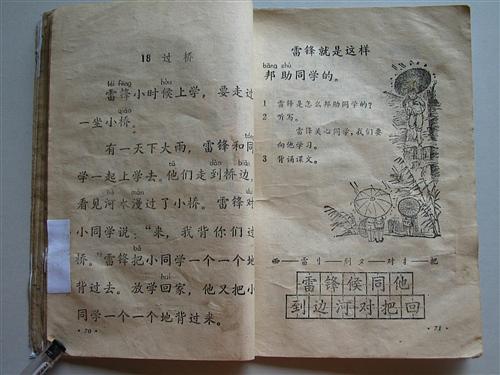 18 过 桥
léi fēng hòu
雷锋小时候上学，要走过
qiáo
一坐小桥。
有一天下大雨，雷锋和同
tā dào biān
学一起上学去。他们走到桥边，
hé màn duì
看见河水漫过了小桥。雷锋对
小同学说：“来，我背你们过
bǎ
桥。”雷锋把小同学一个一个地
huí
背过去。放学回家，他又把小
同学一个一个地背过来。
·70·
雷锋就是这样
bāng zhù
邦助同学的。
1 雷锋是怎么邦助同学的？
2 听写。
雷锋关心同学，我们要
向他学习。
3 背诵课文。
雷锋候同他
到边河对把回
·71·